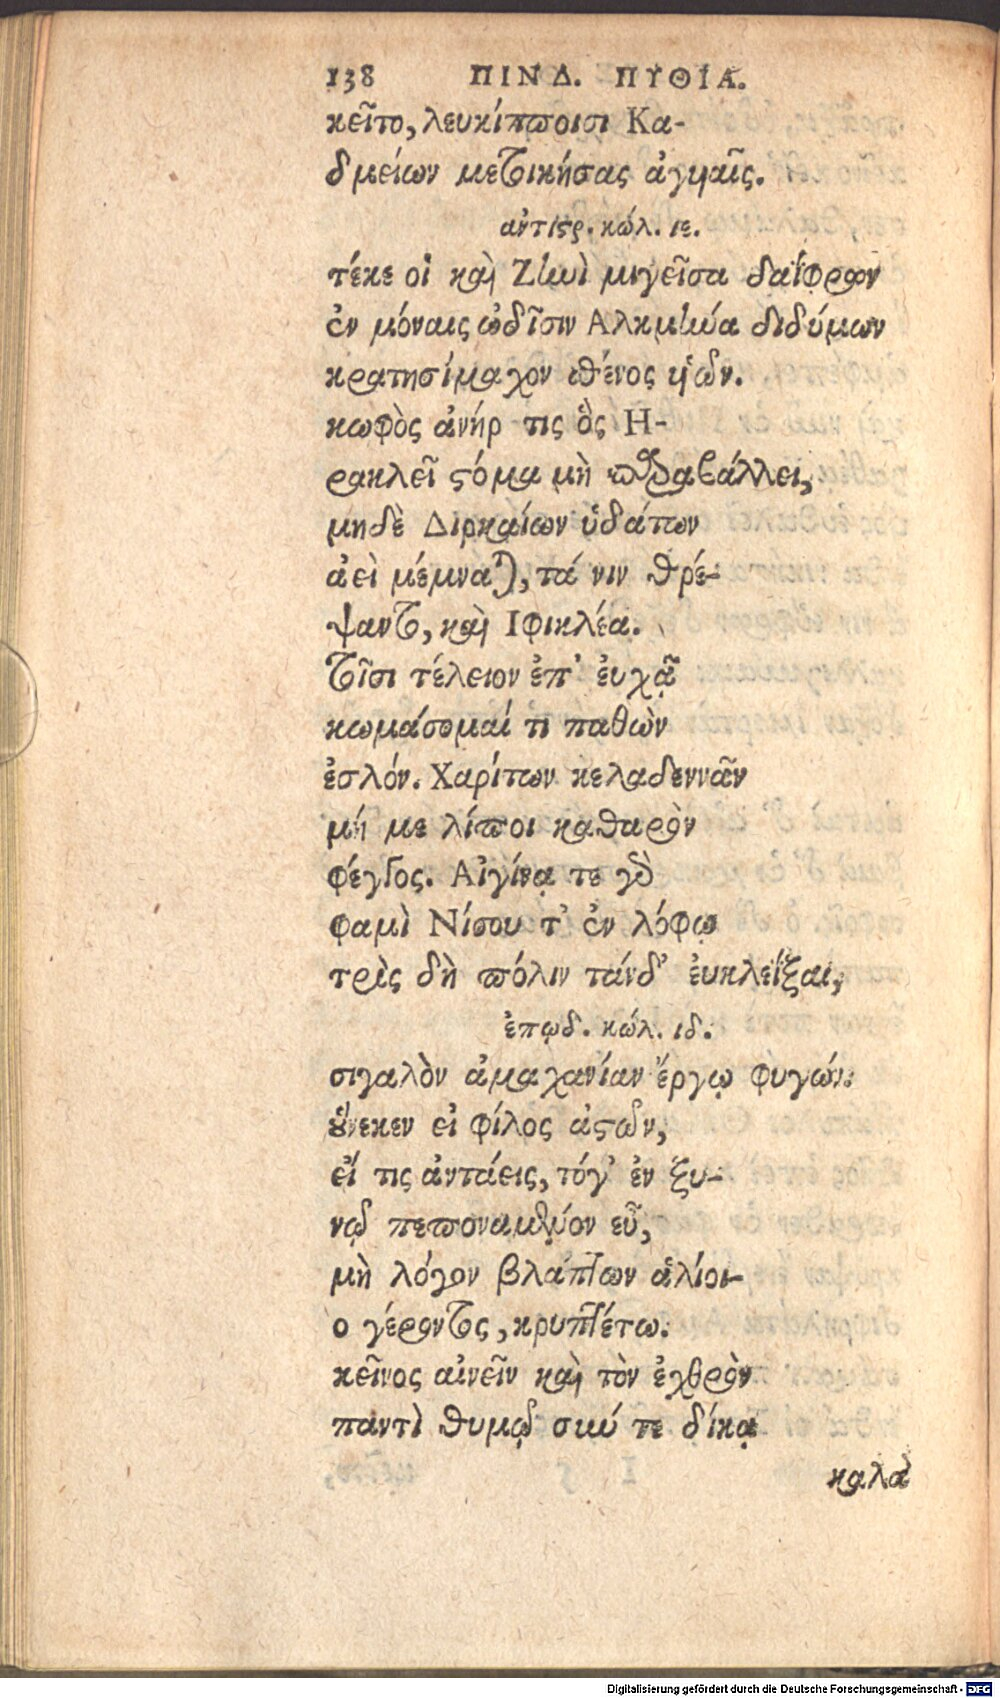 138 ΠΙΝΔ. ΠΥΘΙΑ.
κεῖτο, λευκίπποισι Κα-
δμείων μετοικήσας ἀγυιαῖς.
αντιστρ. κώλ. ιε.
τέκε οἱ καὶ Ζηνὶ μιγεῖσα δαΐφρων
ἐν μόναις ὠδῖσιν Αλκμήνα διδύμων
κρατησίμαχον σθένος υἱῶν.
κωφὸς ἀνήρ τις ὃς Η-
ρακλεῖ στόμα μὴ παραβάλλει,
μηδὲ Διρκαίων ὑδάτων
ἀεὶ μέμναται, τά νιν θρέ-
ψαντο, καὶ Ιφικλέα.
τοῖσι τέλειον ἐπ' ἐυχᾷ
κωμάσομαί τι παθὼν
ἐσλόν. Χαρίτων κελαδεννᾶν
μή με λίποι καθαρὸν
φέγγος. Αἰγίνᾳ τε γὰρ
φαμὶ Νίσου τ' ἐν λόφῳ
τρὶς δὴ πόλιν τάνδ' ἐυκλεΐξαι,
ἐπῳδ. κώλ. ιδ.
σιγαλὸν ἀμαχανίαν ἔργῳ φυγών.
οὕνεκεν εἰ φίλος ἀστῶν,
εἴ τις ἀντάεις, τόγ' ἐν ξυ-
νῷ πεποναμένον εὖ,
μὴ λόγον βλάπτων ἁλίοι-
ο γέροντος, κρυπτέτω.
κεῖνος αἰνεῖν καὶ τὸν ἐχθρὸν
παντὶ θυμῷ σύν τε δίκᾳ
καλὰ
Digitalisierung gefördert durch die Deutsche Forschungsgemeinschaft - DFG